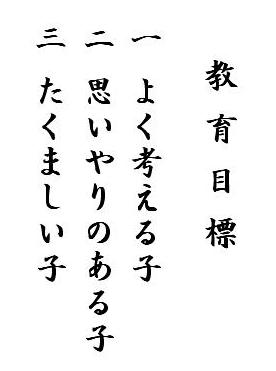 教育目標
一 よく考える子
二 思いやりのある子
三 たくましい子